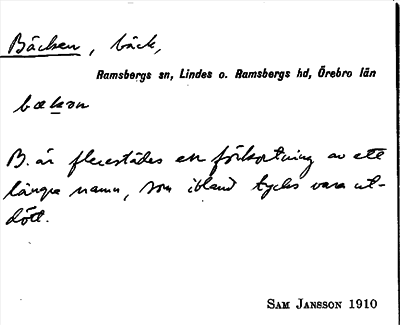 Bäcken, bäck,
Ramsbergs sn, Lindes o. Ramsbergs hd, Örebro län
bækən
B. är flerestädes en förkortning av ett
längre namn, som ibland tycks vara ut-
dött.
SAM JANSSON 1910